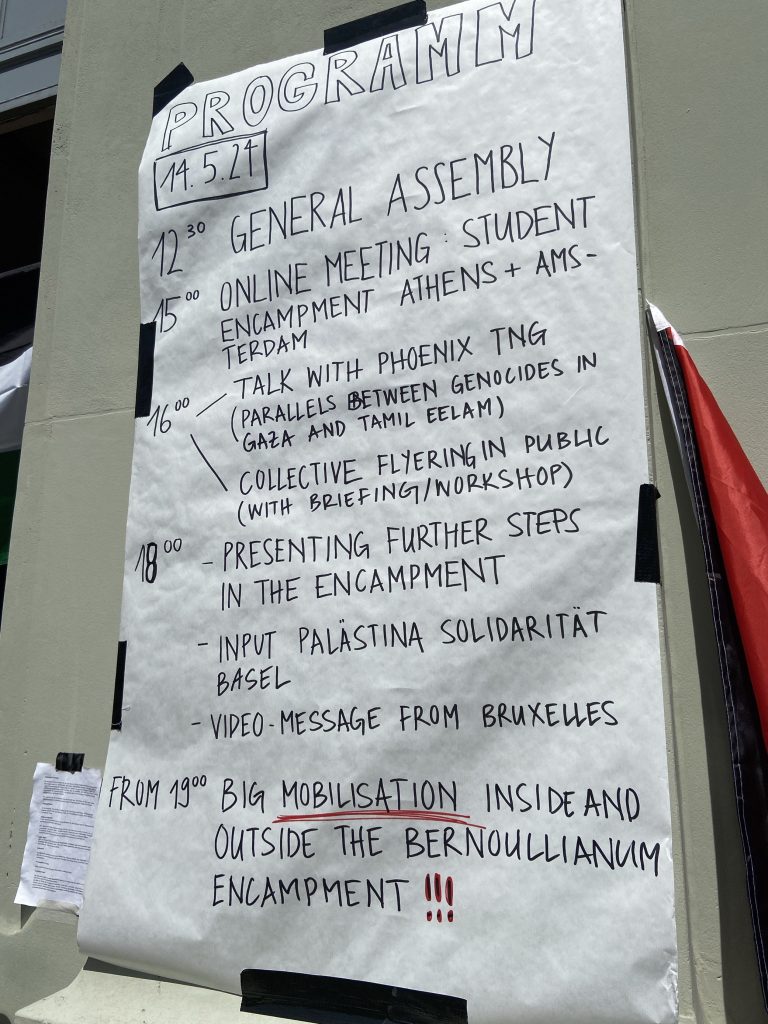 PROGRAMM
14.5.24
12 30 GENERAL ASSEMBLY
15 00 ONLINE MEETING : STUDENT
ENCAMPMENT ATHENS + AMS-
TERDAM
16 00 TALK WITH PHOENIX TNG
(PARALLELS BETWEEN GENOCIDES IN
GAZA AND TAMIL EELAM)
COLLECTIVE FLYERING IN PUBLIC
(WITH BRIEFING/WORKSHOP)
18 00 - PRESENTING FURTHER STEPS
IN THE ENCAMPMENT
- INPUT PALÄSTINA SOLIDARITÄT
BASEL
- VIDEO-MESSAGE FROM BRUXELLES
FROM 19 00 BIG MOBILISATION INSIDE AND
OUTSIDE THE BERNOULLIANUM
ENCAMPMENT !!!